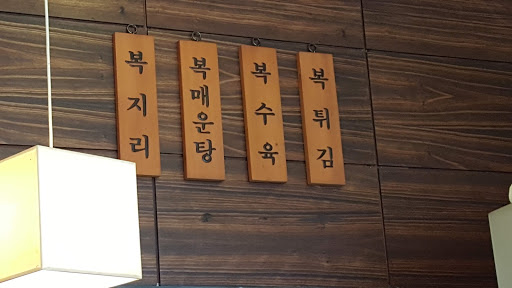 복지리
복매운탕
복수육
복튀김